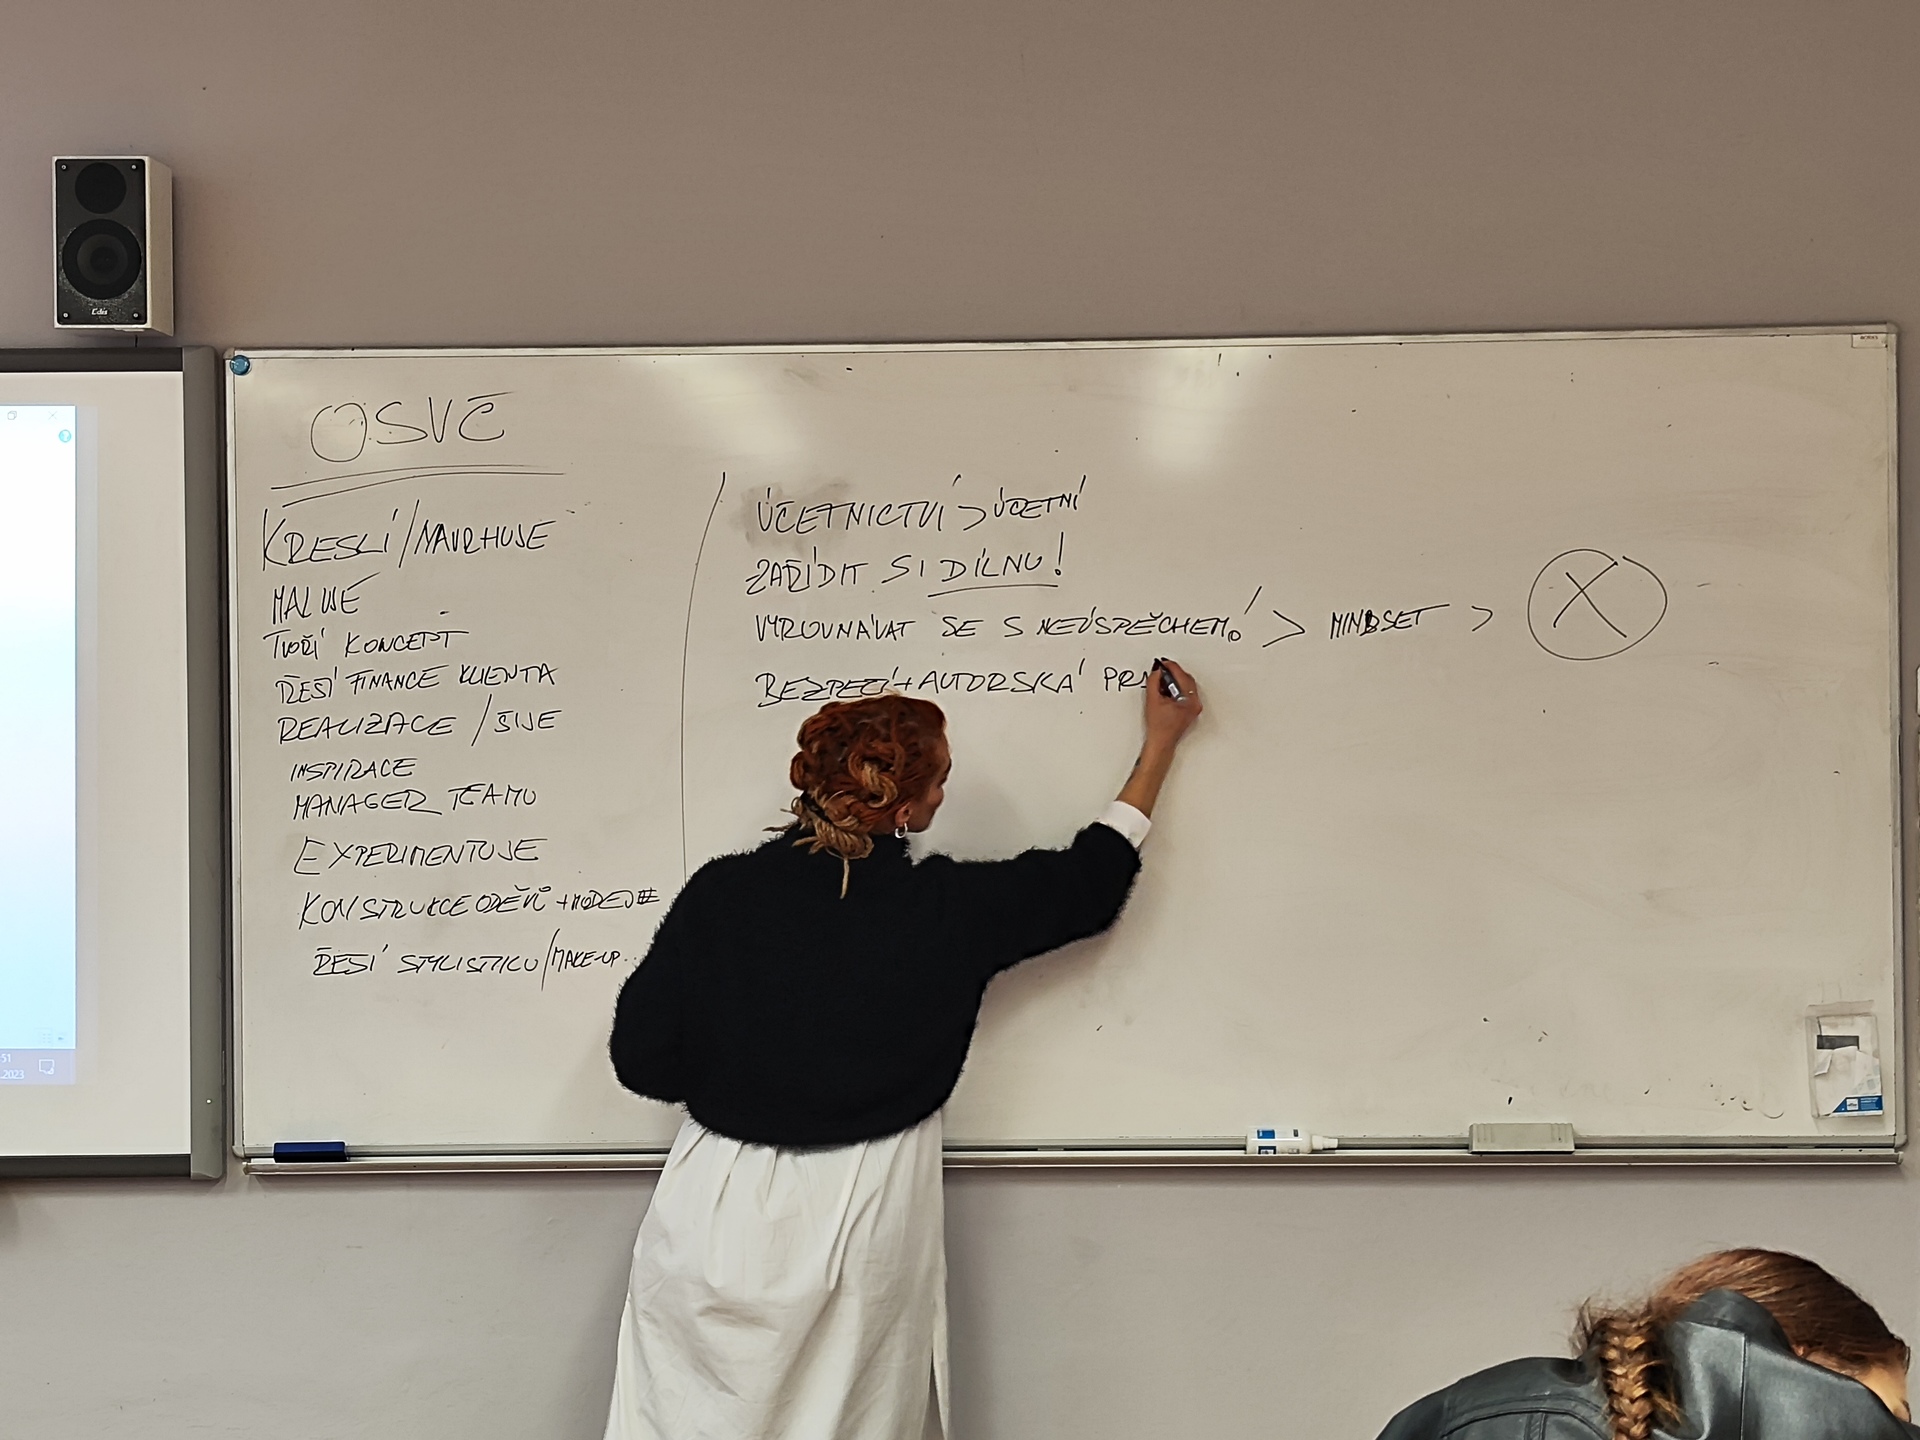 Edis
OSVČ
KRESLÍ/NAVRHUJE
MALUJE
TVOŘÍ KONCEPT
ŘEŠÍ FINANCE KLIENTA
REALIZACE / ŠIJE
INSPIRACE
MANAGER TEAMU
EXPERIMENTUJE
KONSTRUKCE ODĚVŮ +MODEJ
ŘEŠÍ STYLISTIKU/MAKE-UP...
ÚČETNICTVÍ > ÚČETNÍ
ZAŘÍDIT SI DÍLNU!
VYROVNÁVAT SE S NEÚSPĚCHEM! > MINDSET > X
BEZPEČÍ + AUTORSKÁ PRÁ
51
.2023